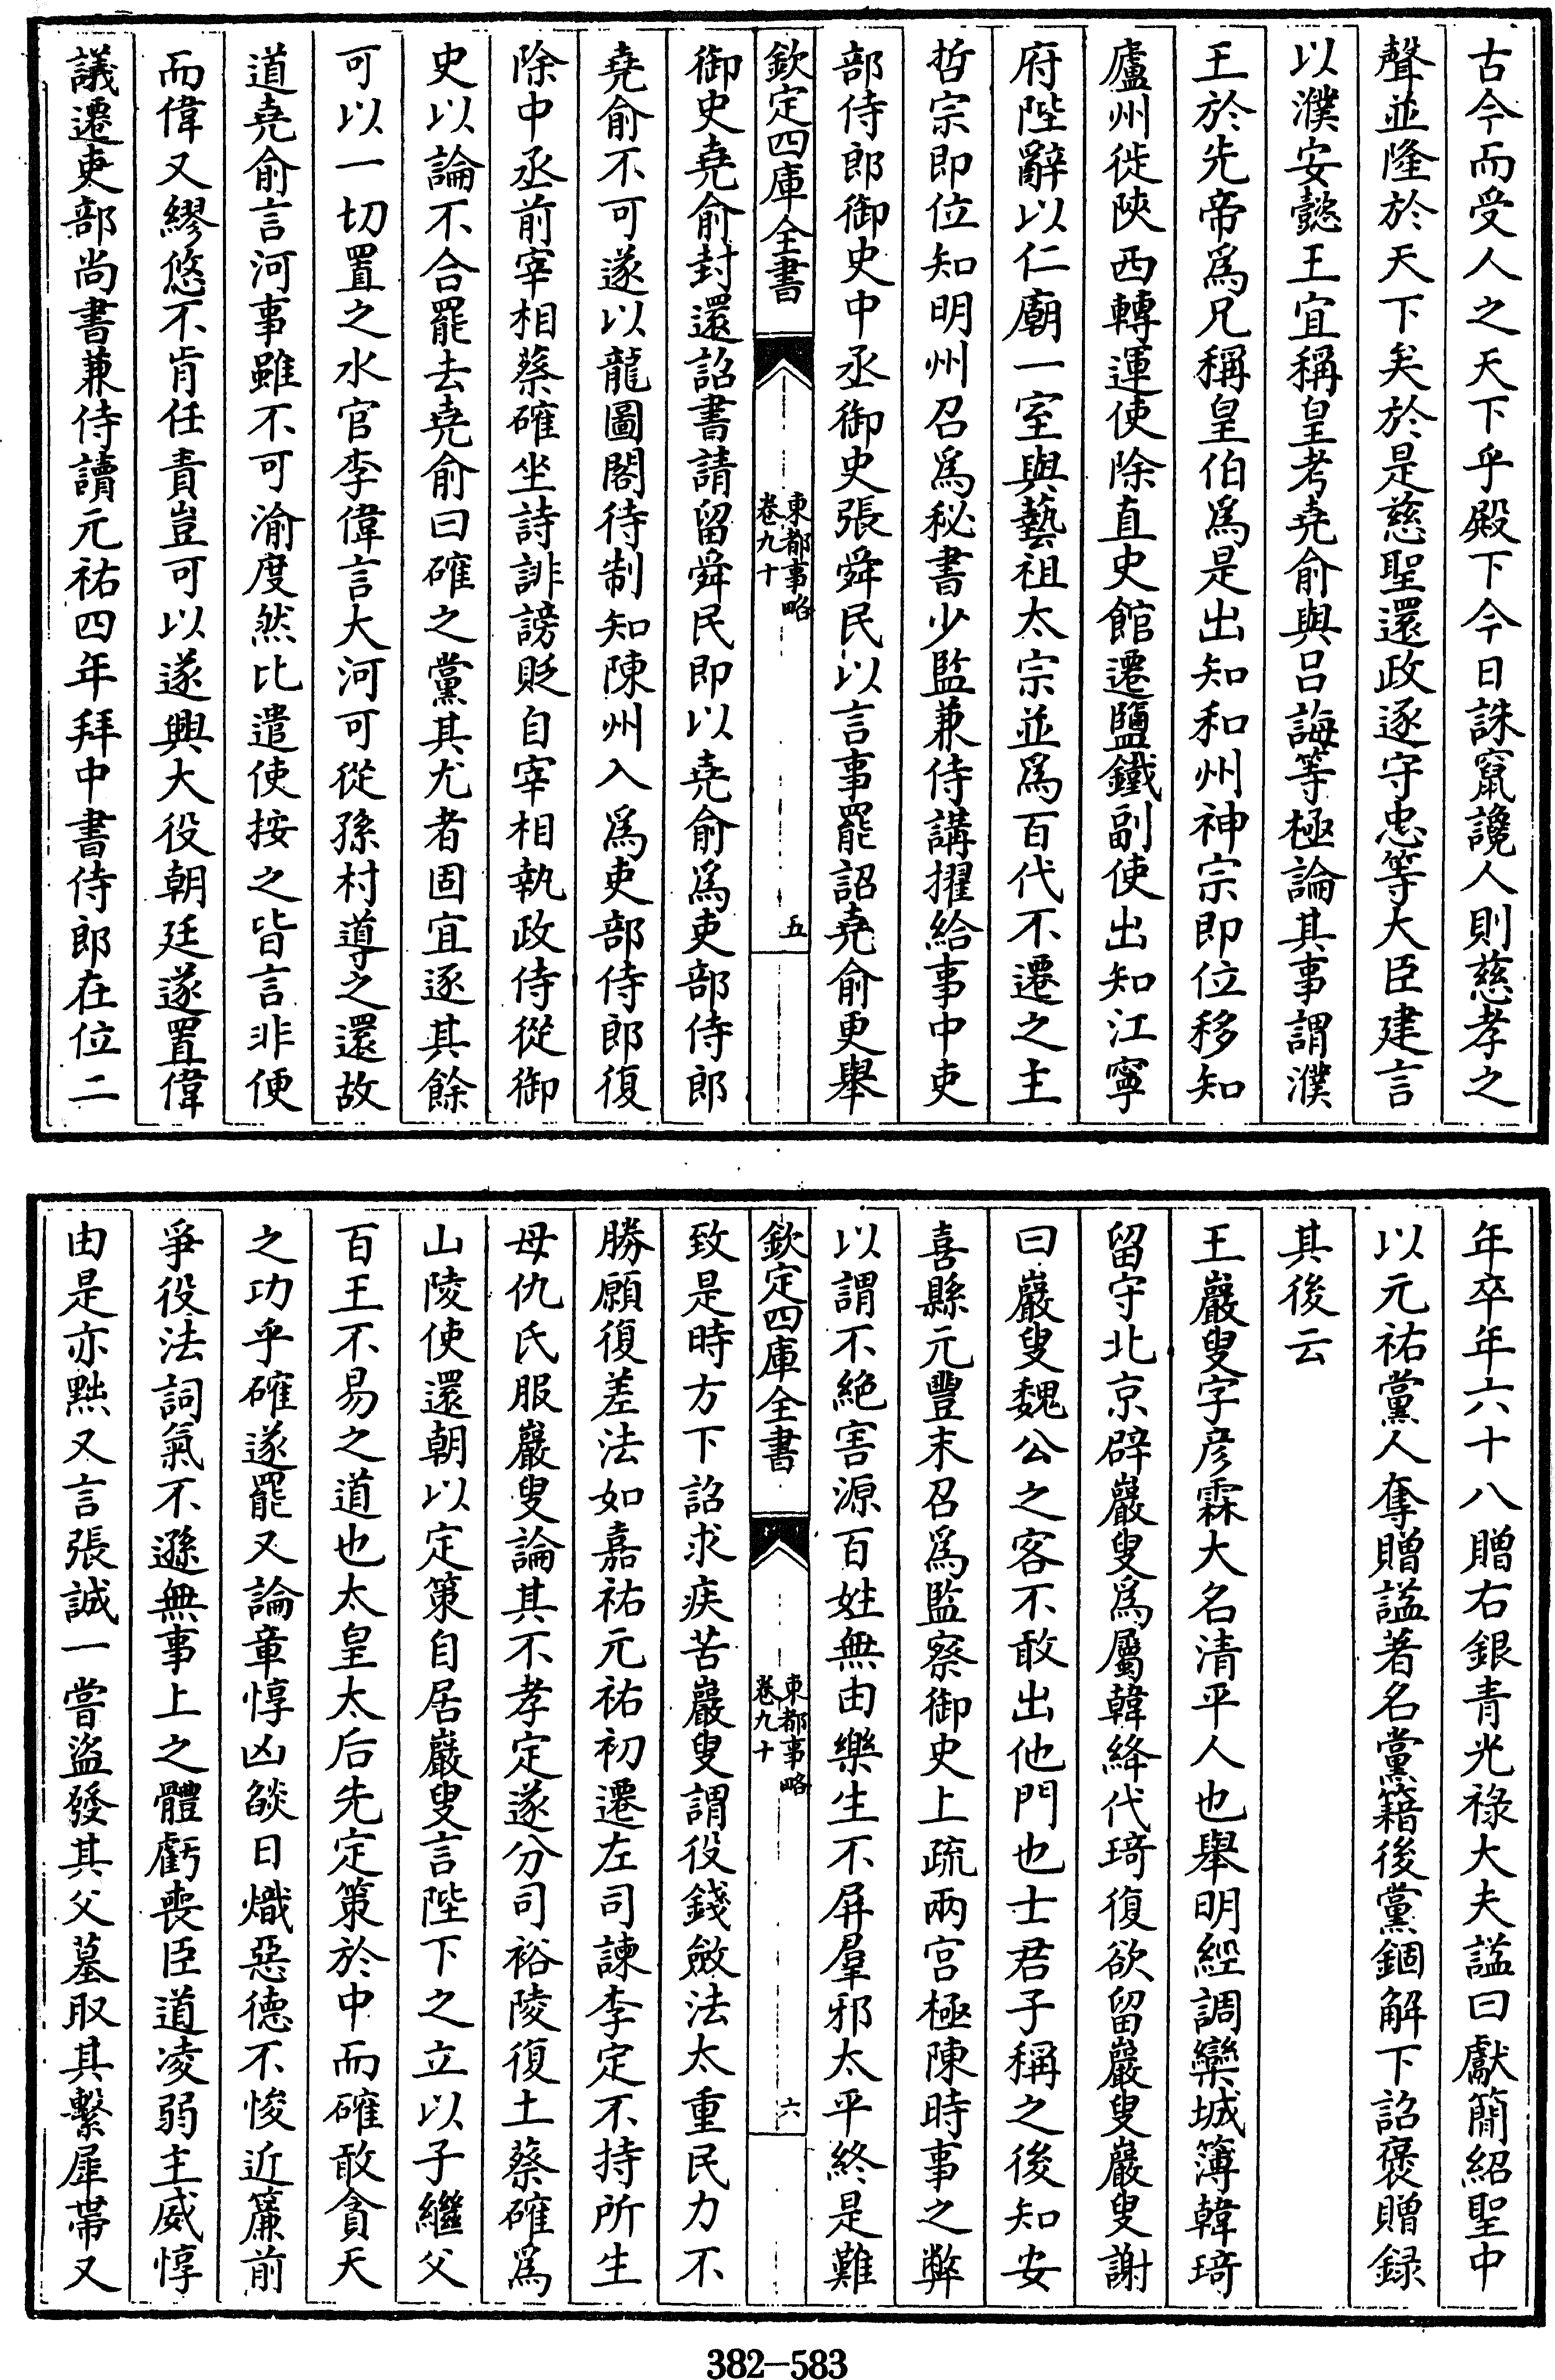 古今而受人之天下乎殿下今日誅竄讒人則慈孝之
聲並隆於天下矣於是慈聖還政逐守忠等大臣建言
以濮安懿王宜稱皇考堯俞與呂誨等極論其事謂濮
王於先帝爲兄稱皇伯爲是出知和州神宗即位移知
廬州徙陝西轉運使除直史館遷鹽鐵副使出知江寧
府陛辭以仁廟一室與藝祖太宗並爲百代不遷之主
哲宗即位知明州召爲秘書少監兼侍講擢給事中吏
部侍郎御史中丞御史張舜民以言事罷詔堯俞更舉
欽定四庫全書
東都事略
卷九十
五
御史堯俞封還詔書請留舜民即以堯俞爲吏部侍郎
堯俞不可遂以龍圖閣待制知陳州入爲吏部侍郎復
除中丞前宰相蔡確坐詩誹謗貶自宰相執政侍從御
史以論不合罷去堯俞曰確之黨其尤者固宜逐其餘
可以一切置之水官李偉言大河可從孫村導之還故
道堯俞言河事雖不可渝度然比遣使按之皆言非便
而偉又繆悠不肯任責豈可以遂興大役朝廷遂置偉
議遷吏部尚書兼侍讀元祐四年拜中書侍郎在位二
年卒年六十八贈右銀青光祿大夫謚曰獻簡紹聖中
以元祐黨人奪贈謚著名黨籍後黨錮解下詔褒贈録
其後云
王巖叟字彥霖大名清平人也舉明經調欒城簿韓琦
留守北京辟巖叟爲屬韓絳代琦復欲留巖叟巖叟謝
曰巖叟魏公之客不敢出他門也士君子稱之後知安
喜縣元豐末召爲監察御史上疏兩宮極陳時事之弊
以謂不絕害源百姓無由樂生不屏羣邪太平終是難
欽定四庫全書
東都事略
卷九十
六
致是時方下詔求疾苦巖叟謂役錢斂法太重民力不
勝願復差法如嘉祐元祐初遷左司諫李定不持所生
母仇氏服巖叟論其不孝定遂分司裕陵復土蔡確爲
山陵使還朝以定策自居巖叟言陛下之立以子繼父
百王不易之道也太皇太后先定策於中而確敢貪天
之功乎確遂罷又論章惇凶燄日熾惡德不悛近簾前
爭役法詞氣不遜無事上之體虧喪臣道凌弱主威惇
由是亦黜又言張誠一嘗盜發其父墓取其繫犀帶又
382—583